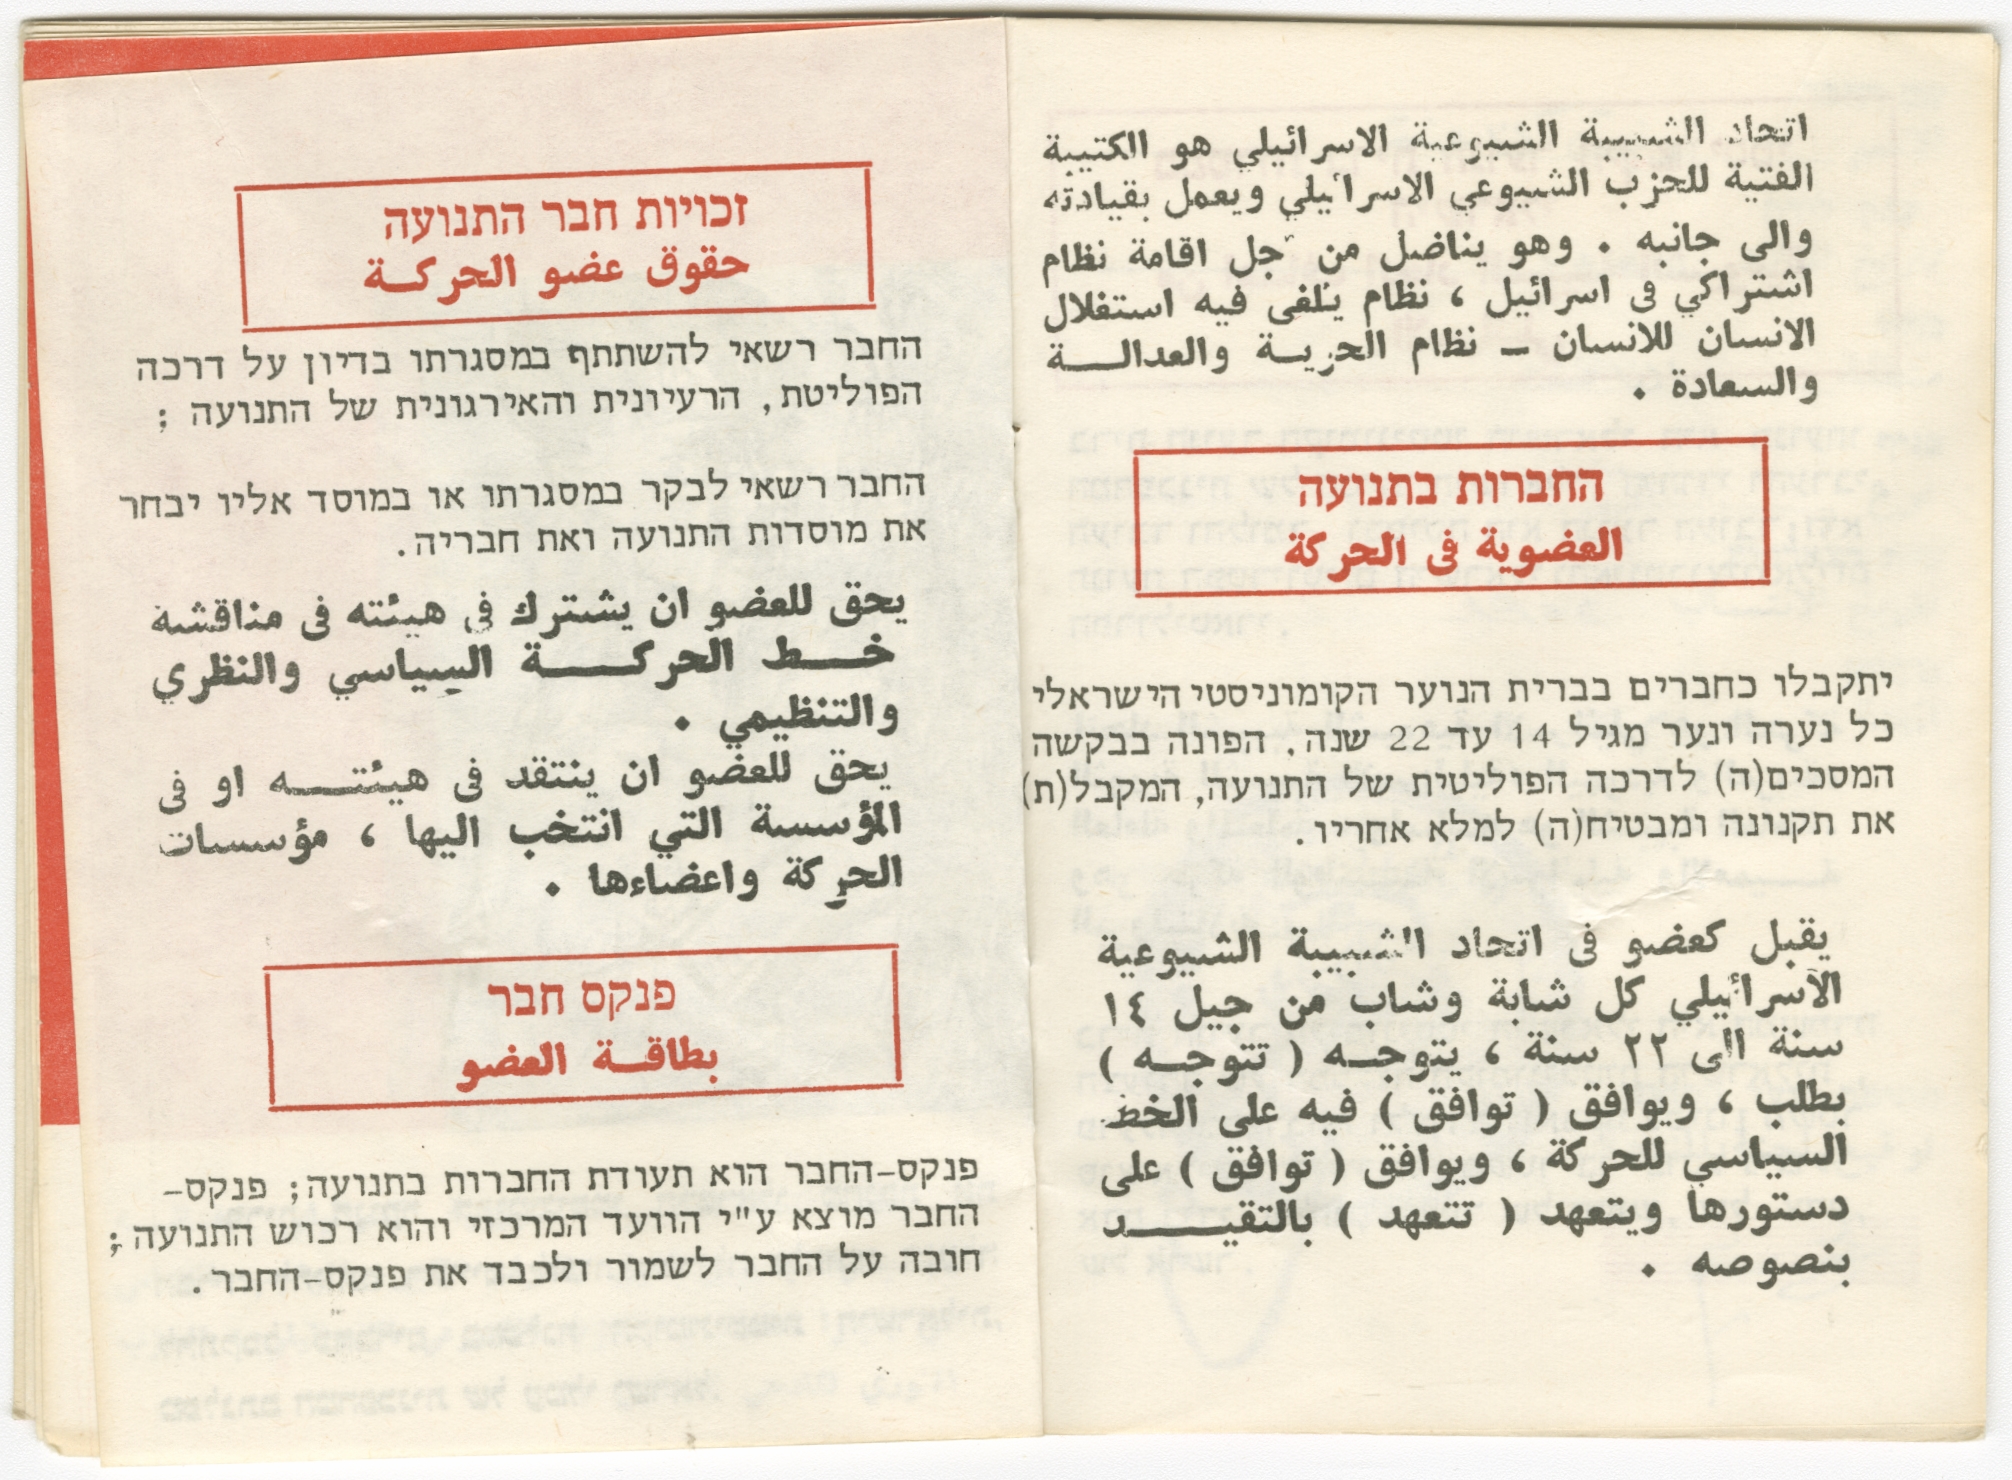 اتحاد الشبيبة الشيوعية الاسرائيلي هو الكتيبة
الفتية للحزب الشيوعي الاسرائيلي ويعمل بقيادته
والى جانبه . وهو يناضل من جل اقامة نظام
اشتراكي في اسرائيل ، نظام يلغى فيه استغلال
الانسان للانسان ــ نظام الحرية والعدالة
والسعادة .
החברות בתנועה
العضوية في الحركة
יתקבלו כחברים בברית הנוער הקומוניסטי הישראלי
כל נערה ונער מגיל 14 עד 22 שנה, הפונה בבקשה
המסכים(ה) לדרכה הפוליטית של התנועה, המקבל(ת)
את תקנונה ומבטיח(ה) למלא אחריו.
يقبل كعضو في اتحاد الشبيبة الشيوعية
الاسرائيلي كل شابة وشاب من جيل ١٤
سنة الى ٢٢ سنة ، يتوجه ( تتوجه )
بطلب ، ويوافق ( توافق ) فيه على الخط
السياسي للحركة ، ويوافق ( توافق ) على
دستورها ويتعهد ( تتعهد ) بالتقيد
بنصوصه .
זכויות חבר התנועה
حقوق عضو الحركة
החבר רשאי להשתתף במסגרתו בדיון על דרכה
הפוליטת, הרעיונית והאירגונית של התנועה ;
החבר רשאי לבקר במסגרתו או במוסד אליו יבחר
את מוסדות התנועה ואת חבריה.
يحق للعضو ان يشترك في هيئته في مناقشة
خط الحركة السياسي والنظري
والتنظيمي .
يحق للعضو ان ينتقد في هيئته او في
المؤسسة التي انتخب اليها ، مؤسسات
الحركة واعضاءها .
פנקס חבר
بطاقة العضو
פנקס-החבר הוא תעודת החברות בתנועה; פנקס-
החבר מוצא ע"י הוועד המרכזי והוא רכוש התנועה;
חובה על החבר לשמור ולכבד את פנקס-החבר.